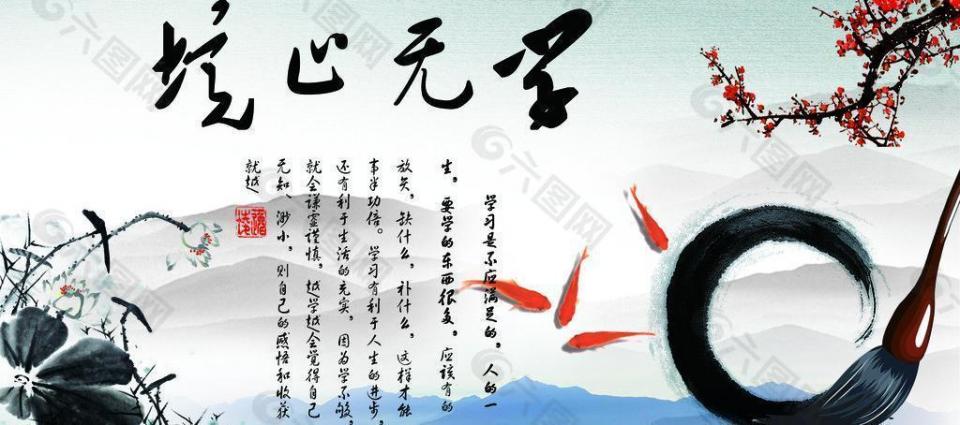 学无止境
学习是不应满足的，人的一
生，要学的东西很多，应该有的
放矢，缺什么，补什么，这样才能
事半功倍。学习有利于人生的进步，
还有利于生活的充实，因为学不够，
就会谦虚谨慎，越学越会觉得自己
无知、渺小，则自己的感悟和收获
就越
六图网